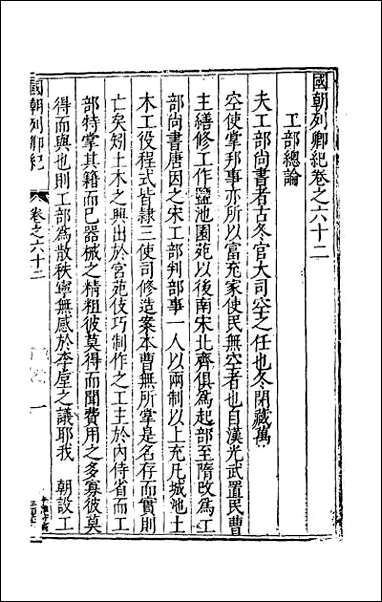 國朝列卿紀卷之六十二
工部總論
夫工部尚書者古冬官大司空之任也冬閉藏萬
空使掌邦事亦所以富充家使民無空者也自漢光武置民曹
主繕修工作鹽池園苑以後南宋北齊俱為起部至隋改為工
部尚書唐因之宋工部判部事一人以兩制以上充凡城池土
木工役程式皆隸三使司修造案本曹無所掌是名存而實則
亡矣矧土木之興出於宮苑伎巧制作之工主於內侍省而工
部特掌其籍而已器械之精粗彼莫得而聞費用之多寡彼莫
得而與也則工部為散秩寧無感於李垕之議耶我 朝設工
國朝列卿紀 卷之六十二 一